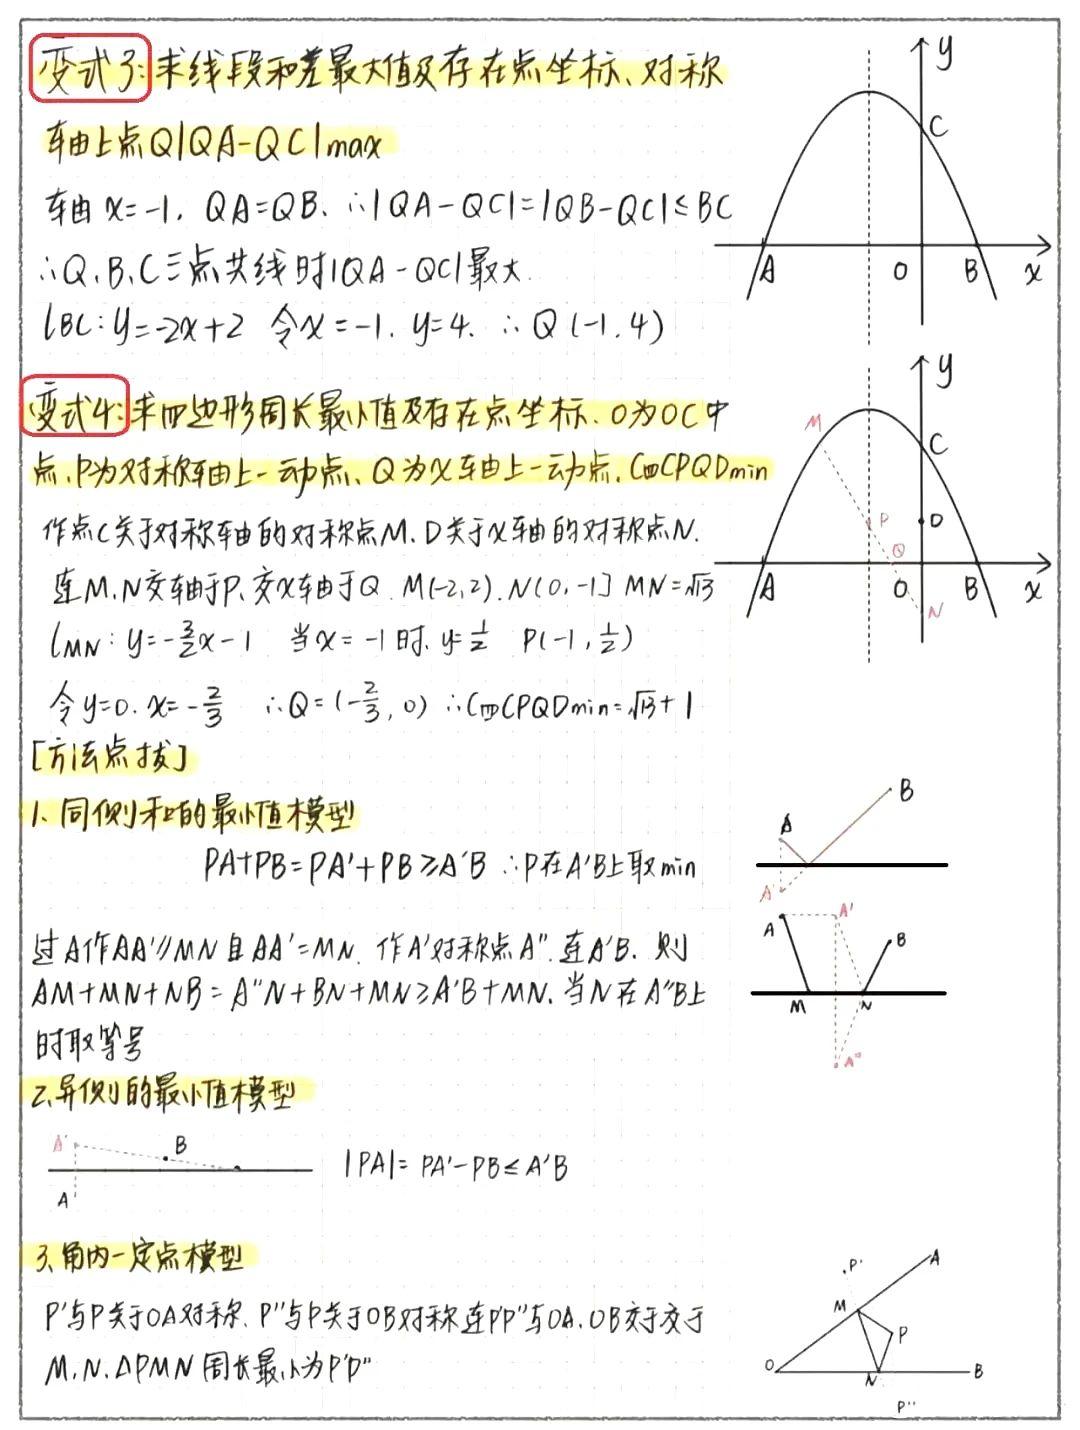 变式3:求线段和差最大值及存在点坐标、对称
轴上点Q|QA-QC|max
轴 x=-1. QA=QB. ∴|QA-QC|=|QB-QC|≤BC
∴Q、B、C三点共线时|QA-QC|最大.
lBC: y=-2x+2 令x=-1. y=4. ∴Q(-1,4)
y
C
A
O
B
x
变式4:求四边形周长最小值及存在点坐标. O为OC中
点.P为对称轴上一动点、Q为x轴上一动点.C四CPQDmin
作点C关于对称轴的对称点M.D关于x轴的对称点N.
连M.N交轴于P.交x轴于Q. M(-2,2).N(0,-1] MN=√13
lMN: y=-3/2x-1 当x=-1时. y=1/2 P(-1,1/2)
令y=0. x=-2/3 ∴Q=(-2/3,0) ∴C四CPQDmin=√13+1
y
M
C
P
D
Q
A
O
B
x
N
[方法点拔]
1、同侧和的最小值模型
PA+PB=PA'+PB≥A'B ∴P在A'B上取min
B
A
A'
过A作AA'∥MN且AA'=MN. 作A'对称点A''.连A'B. 则
AM+MN+NB=A''N+BN+MN≥A'B+MN.当N在A''B上
时取等号
A
A'
B
M
N
A''
2、异侧的最小值模型
A'
B
A
|PA|=PA'-PB≤A'B
3、角内一定点模型
P'与P关于OA对称. P''与P关于OB对称连P'P''与OA.OB交于交于
M.N.△PMN周长最小为P'P''
P'
A
M
P
O
N
B
P''